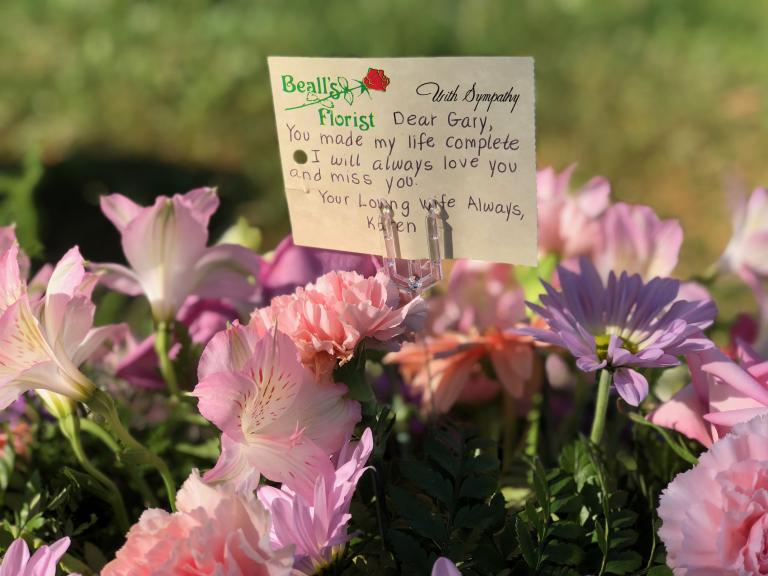 Beall's
Florist
With Sympathy
Dear Gary,
You made my life complete
I will always love you
and miss you.
Your Loving Wife Always,
Karen